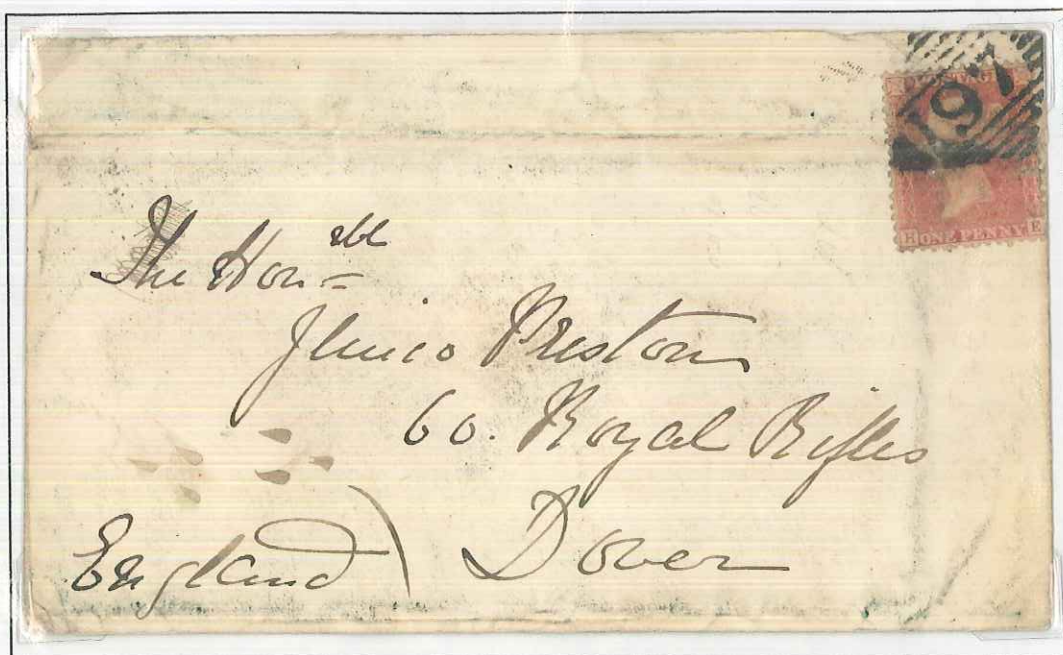 197
POSTAGE
H ONE PENNY E
The Honble
Jenico Preston
60. Royal Rifles
Dover
England